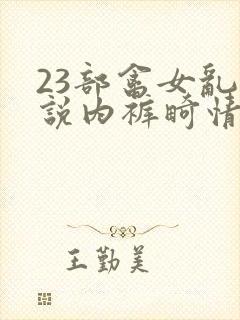 23部畜女亂
説内裤畸情
王勤美